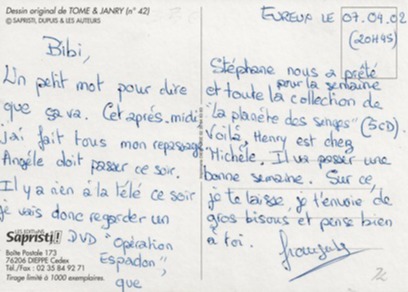 Dessin original de TOME & JANRY (n° 42)
© SAPRISTI, DUPUIS & LES AUTEURS
Bibi,
Un petit mot pour dire
que ça va. Cet après-midi
j'ai fait tous mon repassage
Angèle doit passer ce soir.
Il y a rien à la télé ce soir
je vais donc regarder un
DVD "Opération
Espadon",
que
LES EDITIONS
Sapristi!
Boîte Postale 173
76206 DIEPPE Cedex
Tél./Fax : 02 35 84 92 71
Tirage limité à 1000 exemplaires.
EVREUX LE 07.09.02
(20H45)
Stéphane nous a prêté
pour la semaine
et toute la collection de
"La planète des singes" (5CD).
Voilà, Henry est chez
Michèle. Il va passer une
bonne semaine. Sur ce,
je te laisse, je t'envoie de
gros bisous et pense bien
à toi.